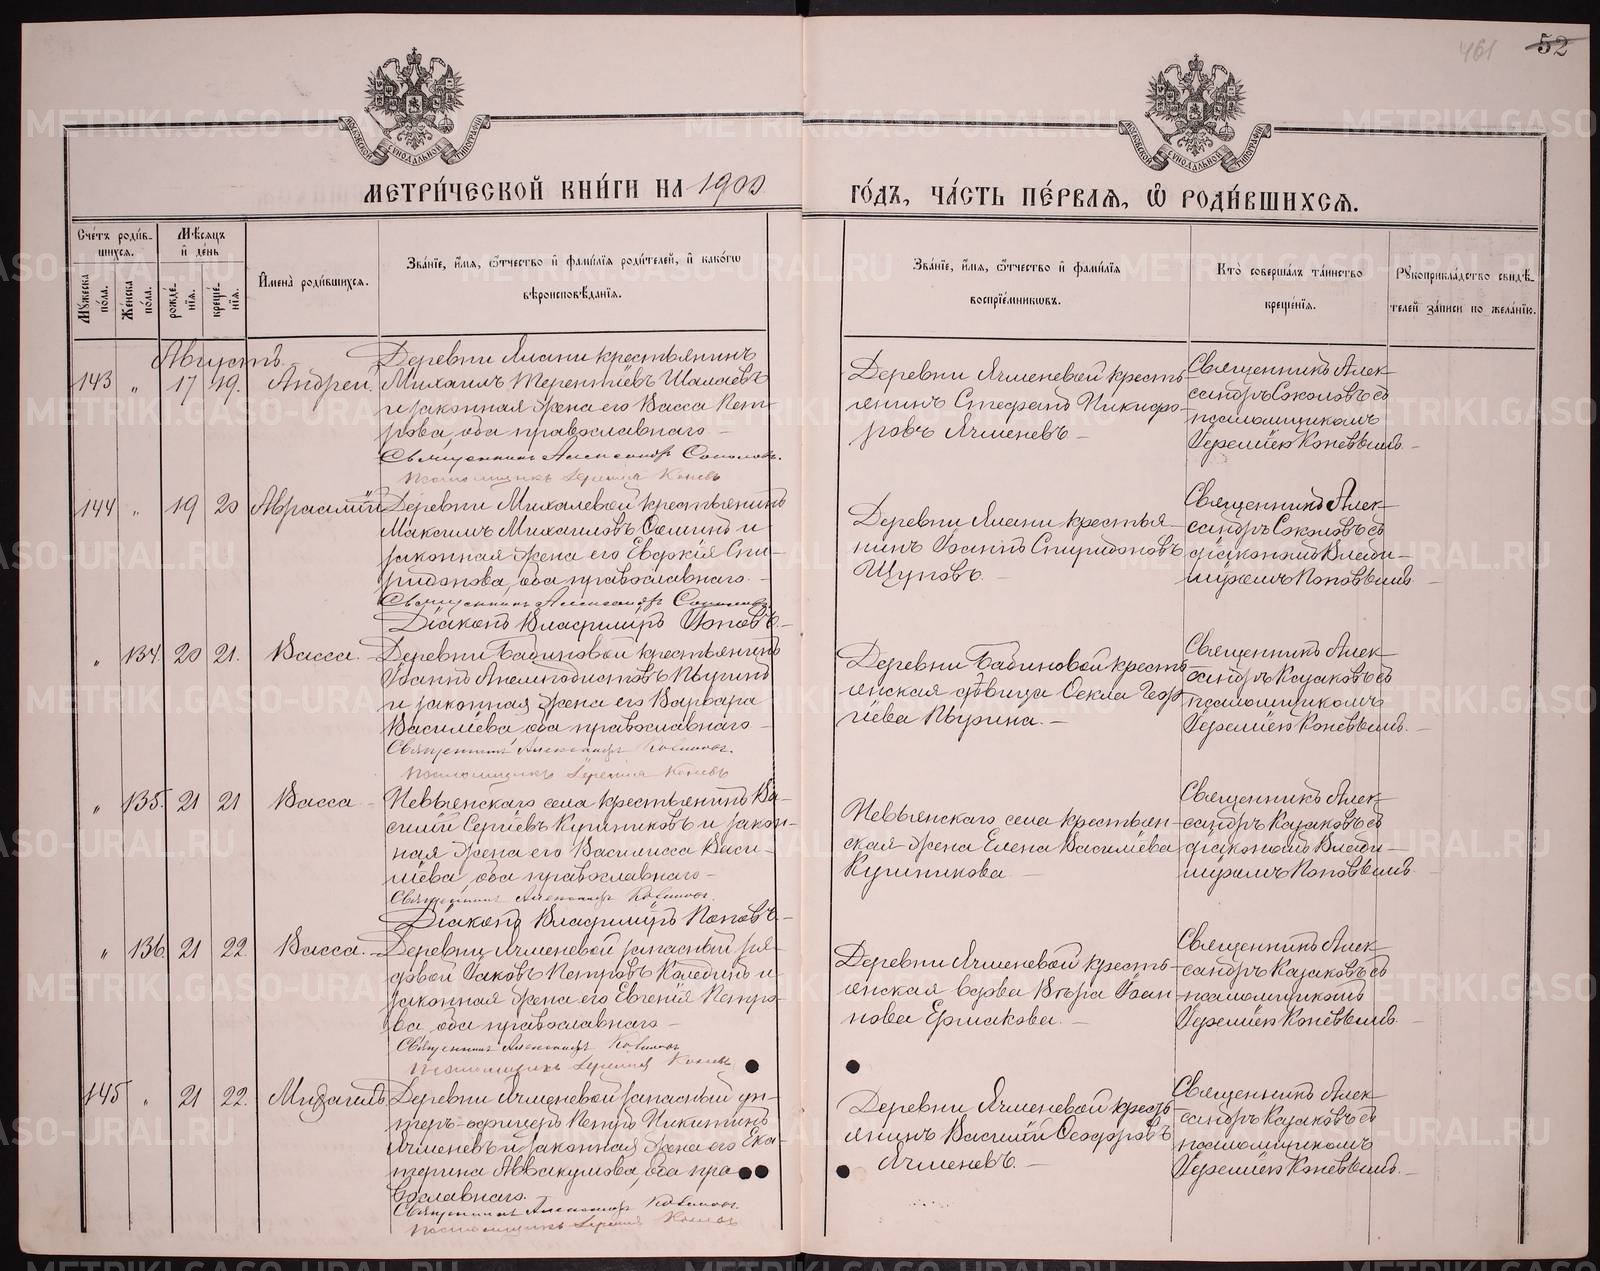 461 52
МЕТРИ́ЧЕСКОЙ КНИ́ГИ НА 1900
ГО́ДЪ, ЧА́СТЬ ПЕ́РВАЯ, Ѽ РОДИ́ВШИХСЯ.
Сче́тъ роди́в-
шихся.
Му́жеска
по́ла.
Же́нска
по́ла.
Мѣ́сяцъ
и де́нь
рожде́-
нїя.
креще́-
нїя.
Имена̀ роди́вшихся.
Зва́нїе, и́мя, ѻ́тчество и фами́лїя роди́телей, и како́гѡ
вѣроисповѣ́данїя.
Зва́нїе, и́мя, ѻ́тчество и фами́лїя
воспрїе́мниковъ.
Кто̀ соверша́лъ та́инство
креще́нїя.
Рукоприкла́дство свидѣ́-
телей за́писи по жела́нїю.
Августъ.
143 " 17 19. Андрей.
Деревни Ялани крестьянинъ
Михаилъ Терентіевъ Шалаевъ
и законная жена его Васса Пет-
рова, оба православнаго
Священникъ Александръ Соколовъ.
Псаломщикъ Іеремія Коневъ
Деревни Ячменевой кресть-
янинъ Стефанъ Никифо-
ровъ Ячменевъ
Священникъ Алек-
сандръ Соколовъ съ
псаломщикомъ
Іереміею Коневымъ.
144 " 19 20 Авраамій
Деревни Михалевой крестьянинъ
Максимъ Михаиловъ Ѳоминъ и
законная жена его Евдокія Спи-
ридонова, оба православнаго.
Священникъ Александръ Соколовъ
Діаконъ Владиміръ Поповъ.
Деревни Ялани крестья-
нинъ Іоаннъ Спиридоновъ
Щуповъ.
Священникъ Алек-
сандръ Соколовъ съ
діакономъ Влади-
міромъ Поповымъ.
" 134. 20 21. Васса.
Деревни Бабиновой крестьянинъ
Іоаннъ Апеллодистовъ Пыринъ
и законная жена его Варвара
Василіева, оба православнаго
Священникъ Александръ Казаковъ.
Псаломщикъ Іеремія Коневъ
Деревни Бабиновой кресть-
янская дѣвица Ѳекла Геор-
гіева Пырина.
Священникъ Алек-
сандръ Казаковъ съ
псаломщикомъ
Іереміею Коневымъ.
" 135. 21 21 Васса
Невьянскаго села крестьянинъ Ва-
силій Сергіевъ Куминиковъ и закон-
ная жена его Василисса Васи-
ліева, оба православнаго
Священникъ Александръ Казаковъ.
Діаконъ Владиміръ Поповъ.
Невьянскаго села крестьян-
ская жена Елена Василіева
Куминикова
Священникъ Алек-
сандръ Казаковъ съ
діакономъ Влади-
міромъ Поповымъ.
" 136. 21 22. Васса.
Деревни Ячменевой запасный ря-
довой Іаковъ Петровъ Колединъ и
законная жена его Евгенія Петро-
ва, оба православнаго
Священникъ Александръ Казаковъ
Псаломщикъ Іеремія Коневъ
Деревни Ячменевой кресть-
янская вдова Вѣра Іоан-
нова Ермакова.
Священникъ Алек-
сандръ Казаковъ съ
псаломщикомъ
Іереміею Коневымъ.
145 " 21 22. Михаилъ
Деревни Ячменевой запасный ун-
теръ-офицеръ Петръ Никитинъ
Ячменевъ и законная жена его Ека-
терина Аввакумова, оба пра-
вославнаго.
Священникъ Александръ Казаковъ
Псаломщикъ Іеремія Коневъ
Деревни Ячменевой кресть-
янинъ Василій Ѳеодоровъ
Ячменевъ.
Священникъ Алек-
сандръ Казаковъ съ
псаломщикомъ
Іереміею Коневымъ.